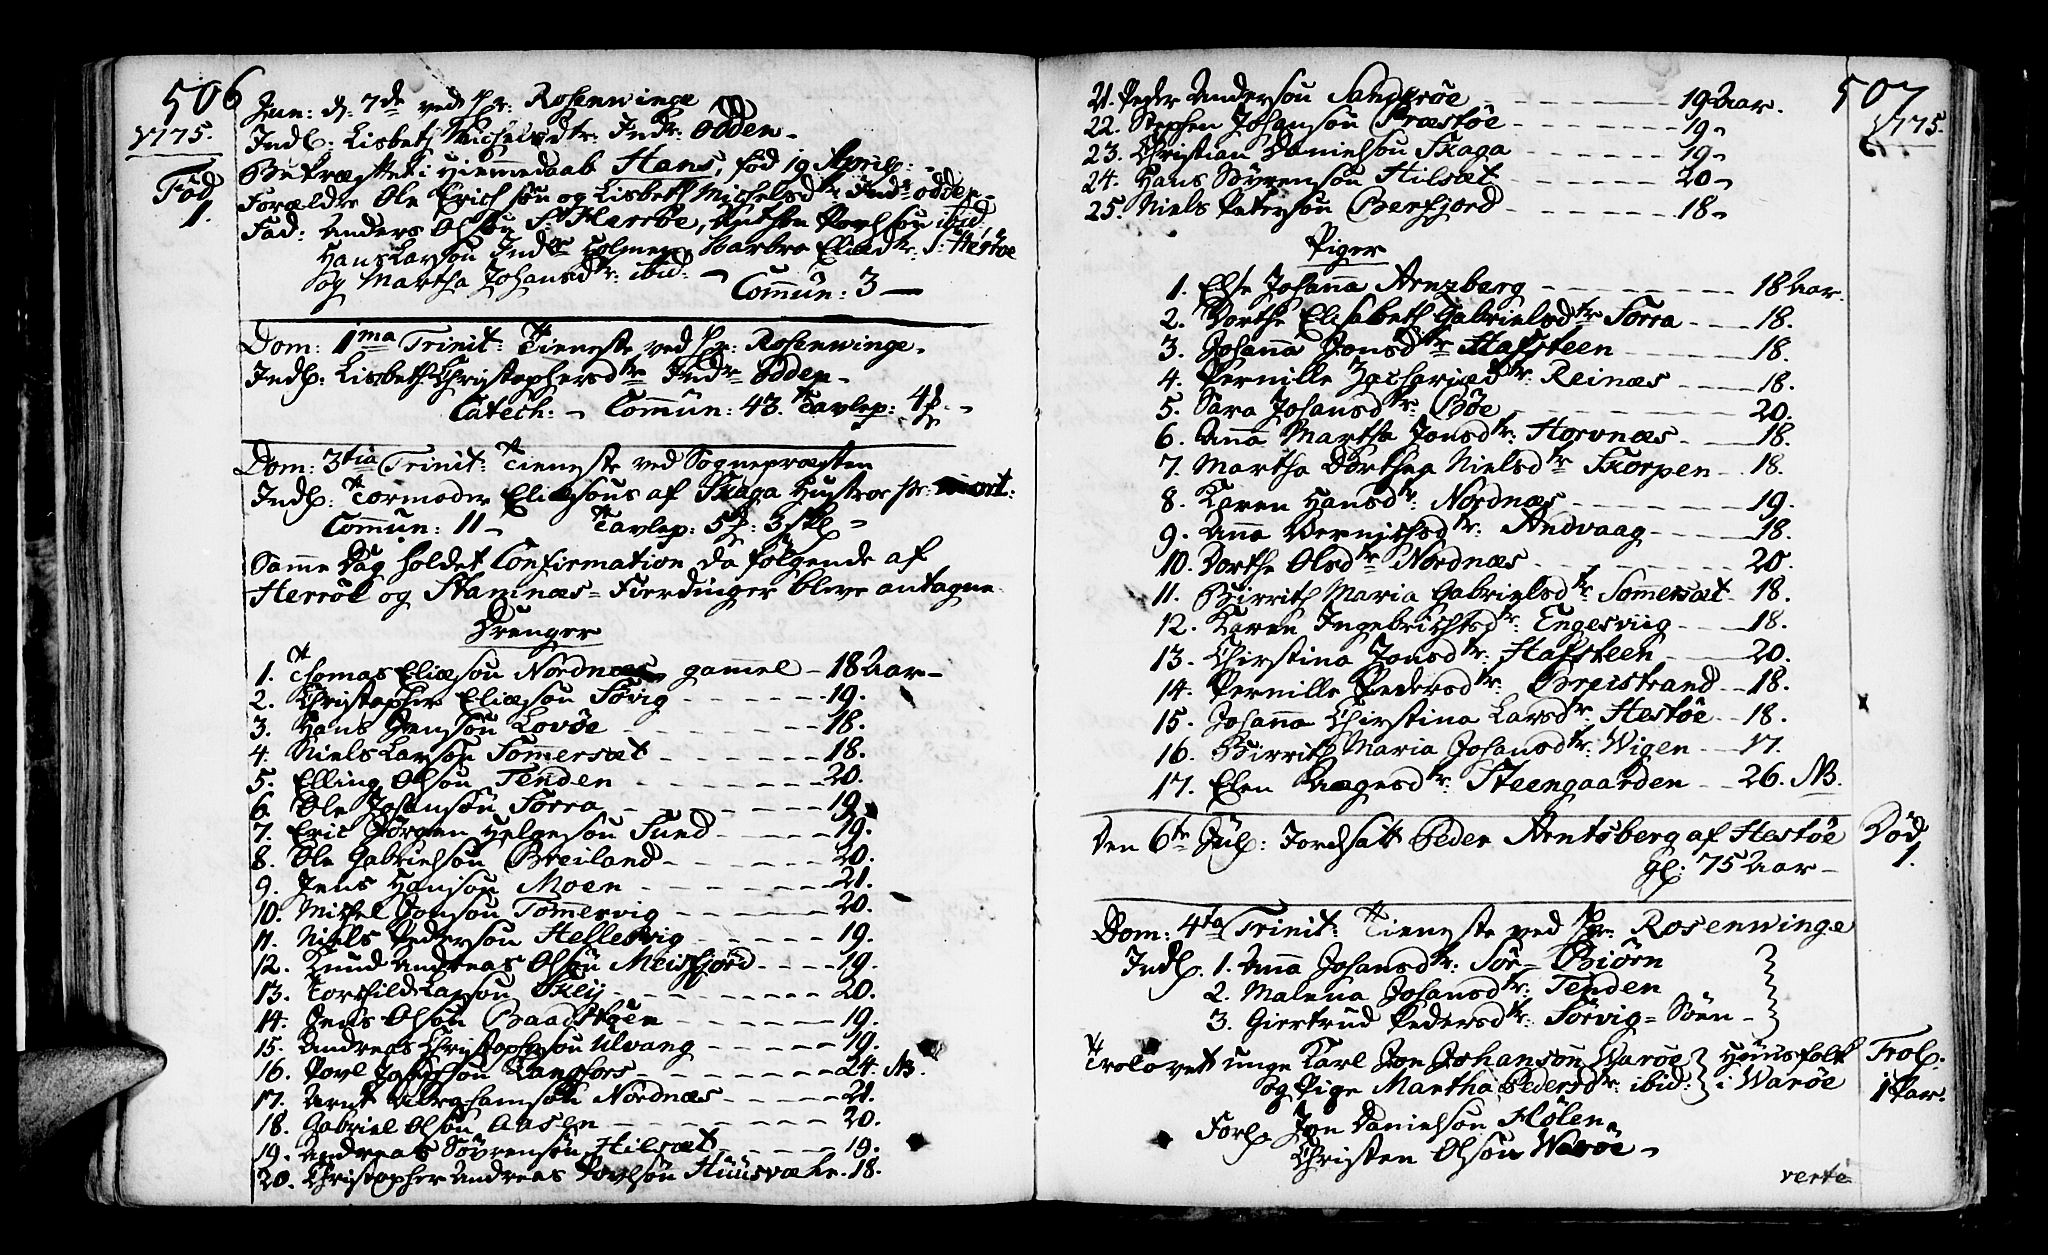 506
1775.
Fød
1.
Jun: d. 7de ved Hr: Rosenwinge
Indl: Lisbeth Michelsdtr: Indr: Odden
Bekræftet i Hiemmedaab Hans, fød 19 April:
Forældre Ole Erichsøn og Lisbeth Michelsdtr Indr: Odden
Fad: Anders Olsøn S: Herrøe, Povelsøn ibid,
Hans Larsøn Indr Holmen, Barbro Eliædtr: S: Hestøe
og Martha Johansdtr: ibid:
Commun: 3
Dom: 1ma Trinit: Tieneste ved Hr: Rosenwinge.
Indl: Lisbeth Christophersdtr Indr Odden
Catech: Commun: 43. Tavlep: 4
Dom: 3tia Trinit: Tieneste ved Sognepræsten
Indl: Tormoder Eliæsøns af Skaga Hustroe
Commun: 11 Tavlep: 5 3
Samme Dag holdet Confirmation da følgende af
Herrøe og Stamnæs Fierdinger bleve antagne
Drenger
1. Thomas Eliæsøn Nordnæs gammel 18 Aar
2. Christopher Eliæsøn Søvig 19.
3. Hans Jensøn Lovøe 18.
4. Niels Larsøn Sommersæt 18.
5. Elling Olsøn Tenden 20.
6. Ole Johansøn Sørra 19.
7. Eric Jørgen Helgesøn Sund 19.
8. Ole Gabrielsøn Breiland 20.
9. Jens Hansøn Moen 21.
10. Michel Jonsøn Tømmervig 20.
11. Niels Pedersøn Hellesvig 19.
12. Knud Andreas Olsøn Meisfjord 19.
13. Torchild Larsøn Skeij 20.
14. Jens Olsøn Baadsköen 19.
15. Andreas Christophersøn Ulvang 19.
16. Povl Jacobsøn Langfors 24. NB.
17. Arnt Abrahamsøn Nordnæs 21.
18. Gabriel Olsøn Aasen 20.
19. Andreas Søvrensøn Hilsæt 19.
20. Christopher Andreas Povelsøn Huusvæ 18.
507
1775.
21. Peder Andersøn Sanderøe 19 Aar.
22. Stephen Johansøn Præstøe 19
23. Christian Danielsøn Skaga 19
24. Hans Søvrensøn Hilsæt 20
25. Niels Petersøn Benfjord 18
Piger
1. Else Johanna Arnzberg 18 Aar.
2. Dorthe Elisabeth Gabrielsdtr Sørra 18.
3. Johanna Jonsdtr Hafsteen 18.
4. Pernille Zachariædtr: Reinæs 18.
5. Sara Johansdtr: Bøe 20.
6. Anna Martha Jonsdtr: Horvnæs 18.
7. Martha Dorthea Nielsdtr Skorpen 18.
8. Karen Hansdtr: Nordnæs 19.
9. Anna Berntsdtr: Andvaag 18.
10. Dorthe Olsdtr Nordnæs 20.
11. Birrith Maria Gabrielsdtr Sommersæt 18.
12. Karen Ingebrichtsdtr: Engesviig 18.
13. Christina Jonsdtr: Hafsteen 20.
14. Pernille Pedersdtr: Breistrand 18.
15. Johanna Christina Larsdtr: Hestøe 18.
16. Birrith Maria Johansdtr: Wigen 17.
17. Elen Aagesdtr: Steengaarden 26. NB.
Den 6te Jul: Jordsatt Peder Arntsberg af Hestøe
gl: 75 Aar
Død
1.
Dom: 4ta Trinit: Tieneste ved Hr: Rosenwinge
Indl. 1. Anna Johansdtr: Sør-Biørn
2. Malena Johansdtr: Tenden
3. Giertrud Pedersdtr: Sørvig-Søen
Trolovet unge Karl Jon Johansøn Warøe Huusfolk
og Pige Martha Pedersdtr: ibid: i Warøe
Trol.
1 Par.
Forl. Jon Danielsøn Hølen
Christen Olsøn Warøe
verte